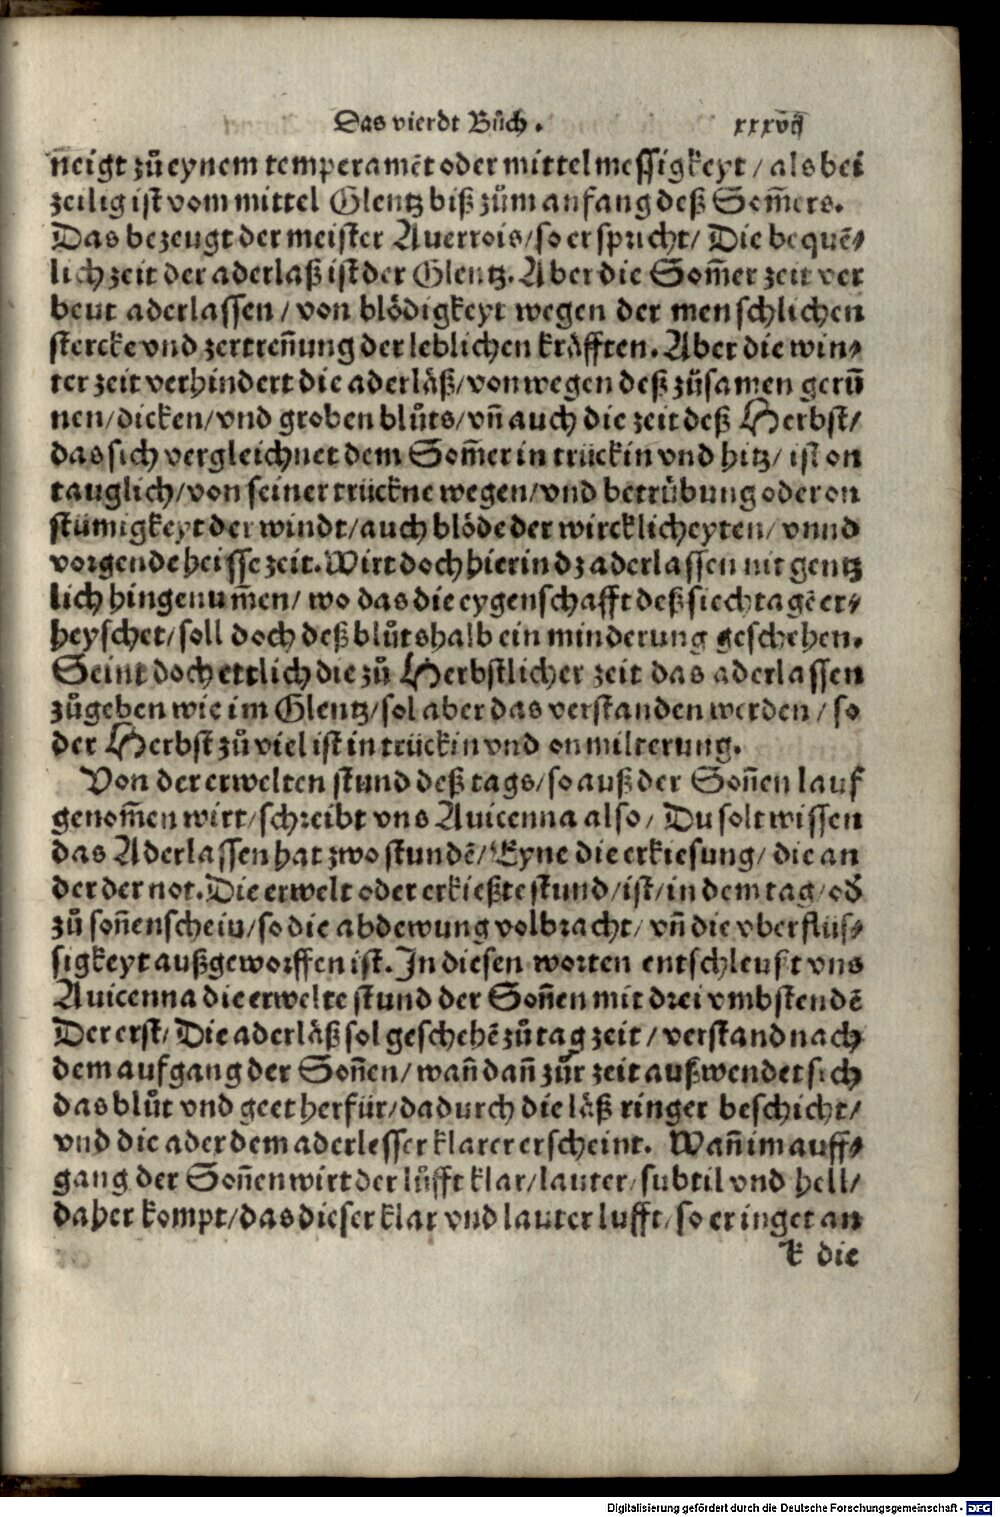 Das vierdt Bůch. xxxvij
neigt zů eynem temperamẽt oder mittelmessigkeyt / als bei
zeilig ist vom mittel Glentz biß zům anfang deß Som̃ers.
Das bezeugt der meister Auerrois / so er spricht / Die bequẽ⸗
lich zeit der aderlaß ist der Glentz. Aber die Som̃er zeit ver
beut aderlassen / von blödigkeyt wegen der menschlichen
stercke vnd zertreñung der leblichen kräfften. Aber die win⸗
ter zeit verhindert die aderläß / von wegen deß zůsamen gerũ
nen / dicken / vnd groben blůts / vñ auch die zeit deß Herbst /
das sich vergleichnet dem Som̃er in trückin vnd hitz / ist on
tauglich / von seiner trückne wegen / vnd betrübung oder on
stümigkeyt der windt / auch blöde der wircklicheyten / vnnd
vorgende heisse zeit. Wirt doch hierin dz aderlassen nit gentz
lich hingenum̃en / wo das die eygenschafft deß siechtagẽ er⸗
heyschet / soll doch deß blůts halb ein minderung geschehen.
Seint doch ettlich die zů Herbstlicher zeit das aderlassen
zůgeben wie im Glentz / sol aber das verstanden werden / so
der Herbst zů viel ist in trückin vnd on milterung.
Von der erwelten stund deß tags / so auß der Soñen lauf
genom̃en wirt / schreibt vns Auicenna also / Du solt wissen
das Aderlassen hat zwo stundẽ / Eyne die erkiesung / die an
der der not. Die erwelt oder erkießte stund / ist / in dem tag / od̃
zů soñenschein / so die abdewung volbracht / vñ die vberflüs⸗
sigkeyt außgeworffen ist. In diesen worten entschleust vns
Auicenna die erwelte stund der Soñen mit drei vmbstendẽ
Der erst / Die aderläß sol geschehẽ zů tag zeit / verstand nach
dem aufgang der Soñen / wañ dañ zůr zeit außwendet sich
das blůt vnd geet herfür / dadurch die läß ringer beschicht /
vnd die ader dem aderlesser klarer erscheint. Wañ im auff⸗
gang der Soñen wirt der lůfft klar / lauter / subtil vnd hell /
daher kompt / das dieser klar vnd lauter lufft / so er inget an
k die
Digitalisierung gefördert durch die Deutsche Forschungsgemeinschaft - DFG